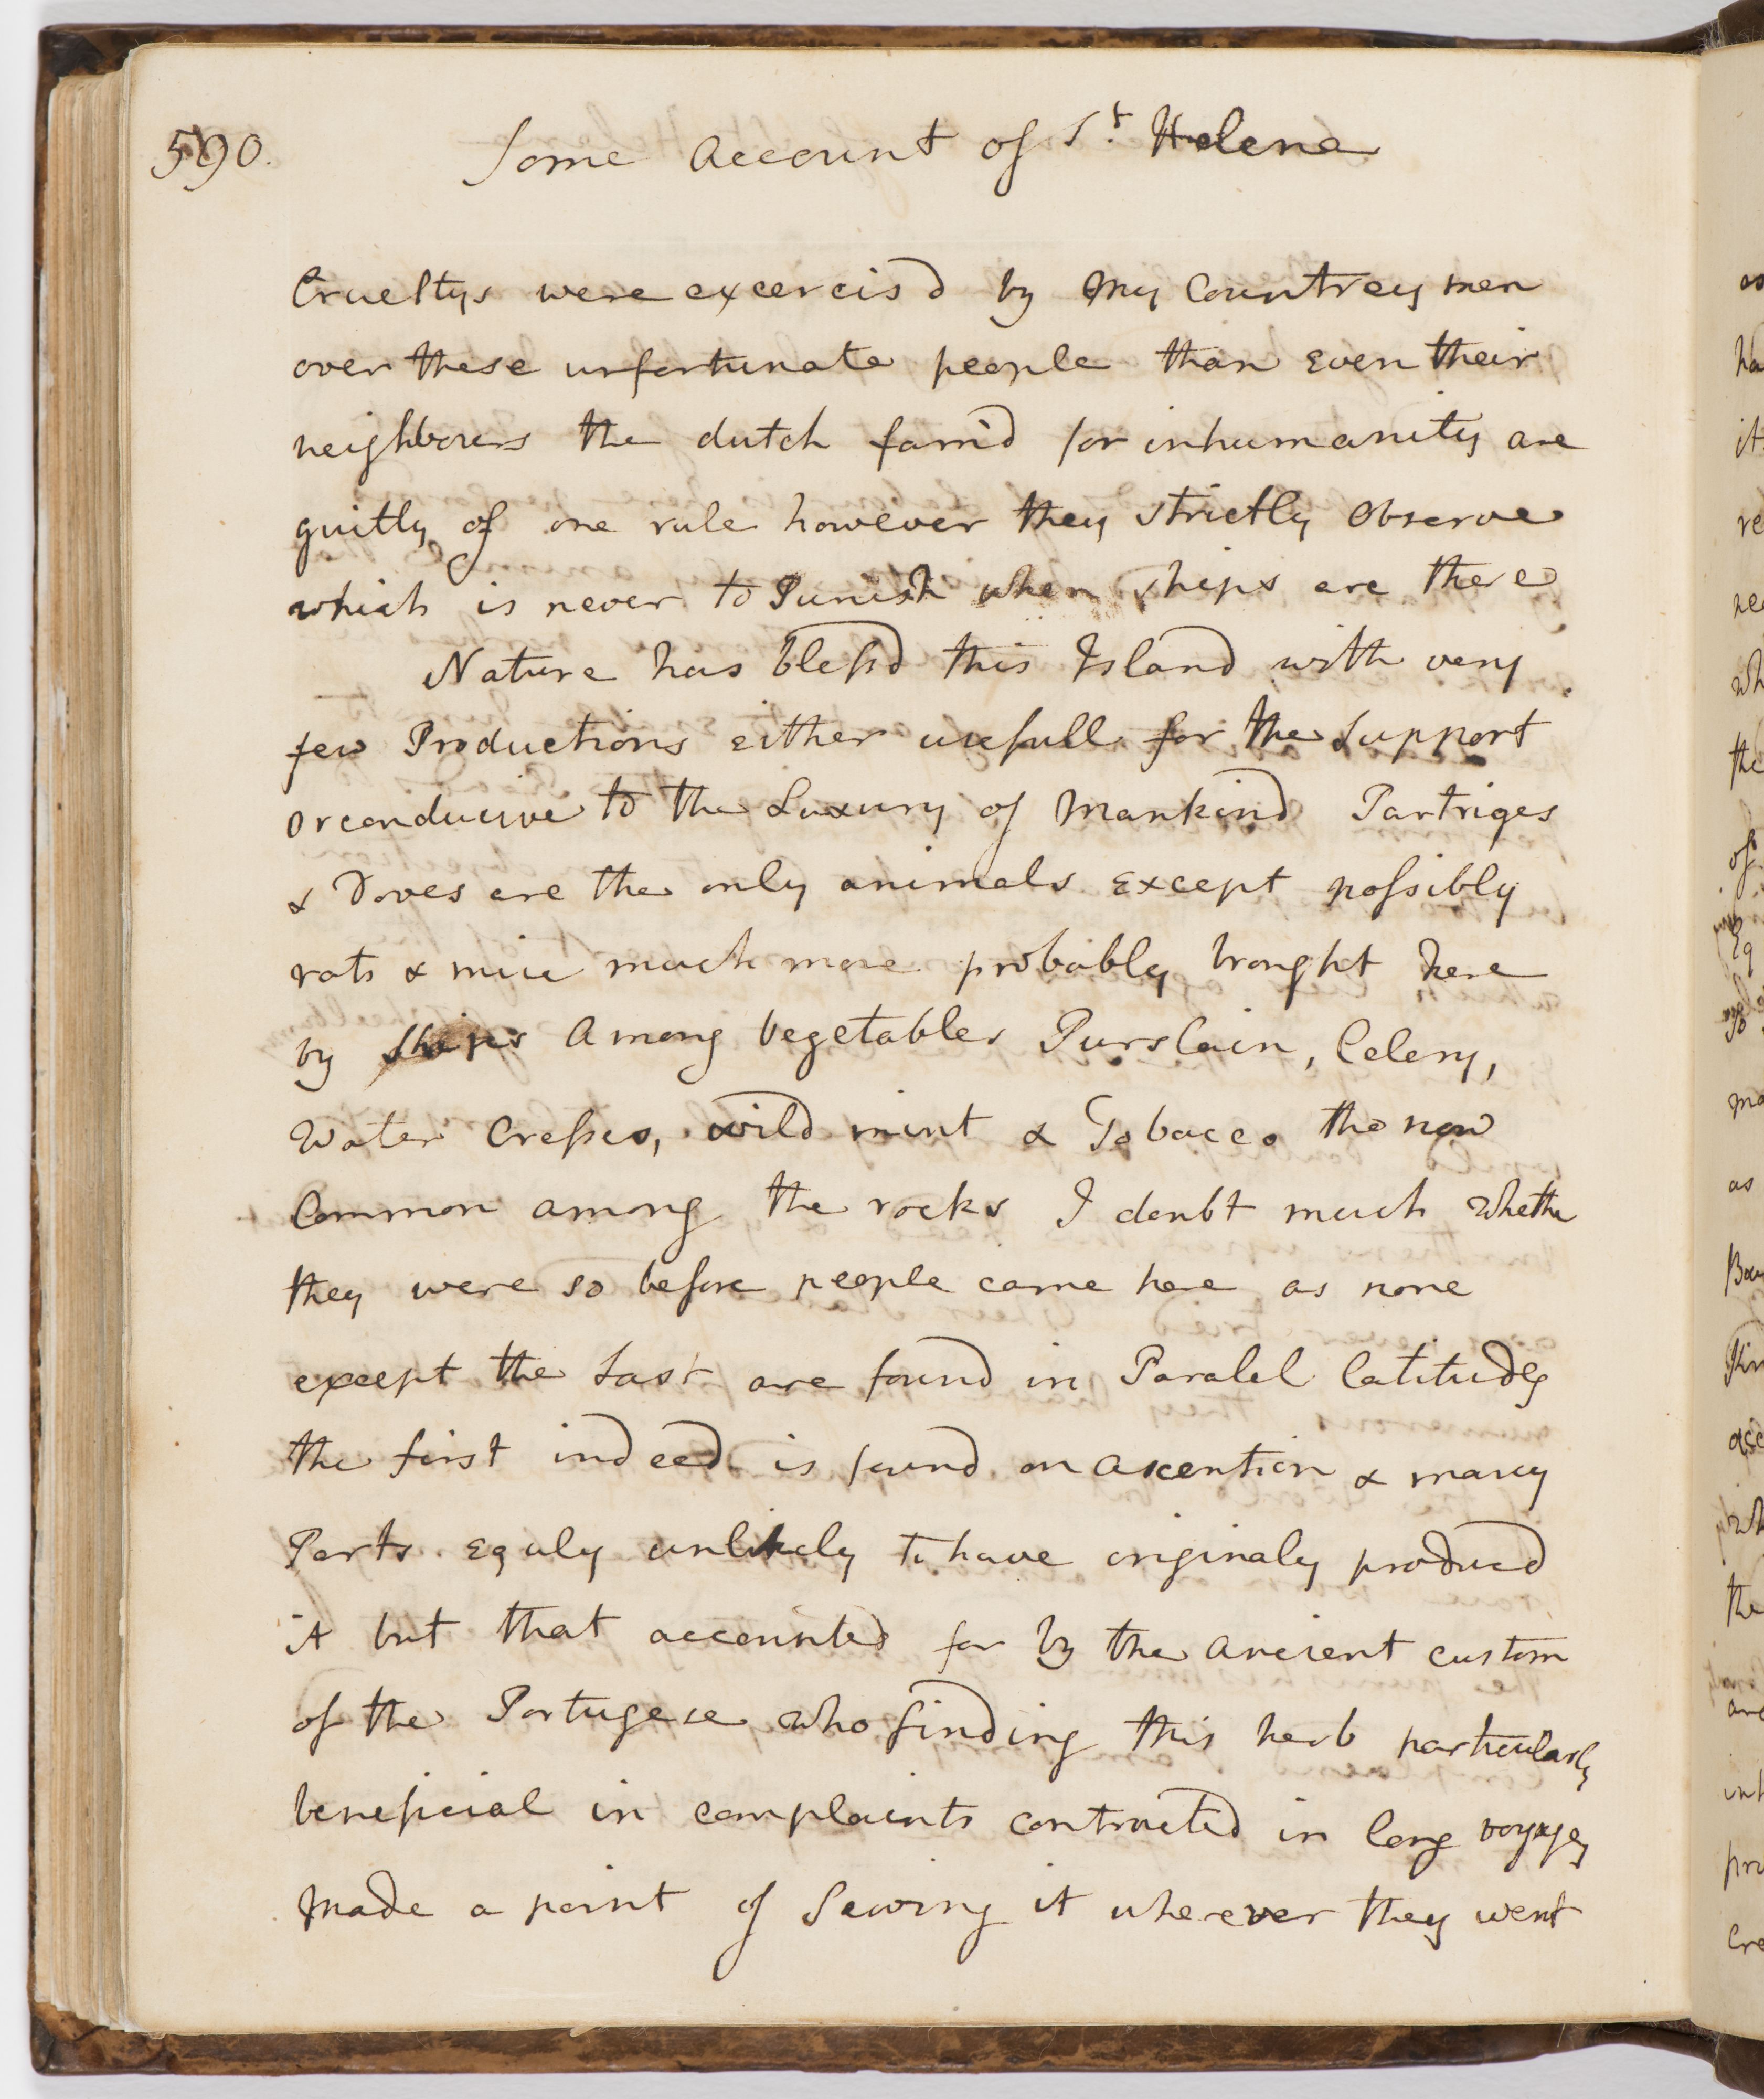 590.
Some Account of St. Helena
Crueltys were excercis'd by my Countrey men
over these unfortunate people than even their
neighbours the dutch fam'd for inhumanity are
guilty of one rule however they strictly observe
which is never to Punish when ships are there
Nature has blessd this Island with very
few Productions either usefull for the Support
or conducive to the Luxury of Mankind Partriges
& Doves are the only animals except possibly
rats & mice much more probably brought here
by ships Among vegetables Purslain, Celery,
Water Cresses, wild mint & Tobacco tho now
Common among the rocks I doubt much whether
they were so before people came here as none
except the Last are found in Paralel latitudes
the first indeed is found on Ascention & many
Parts equaly unlikely to have originaly producd
it but that accounted for by the ancient custom
of the Portugese who finding this herb particularly
beneficial in complaints contracted in long voyages
made a point of Sowing it wherever they went